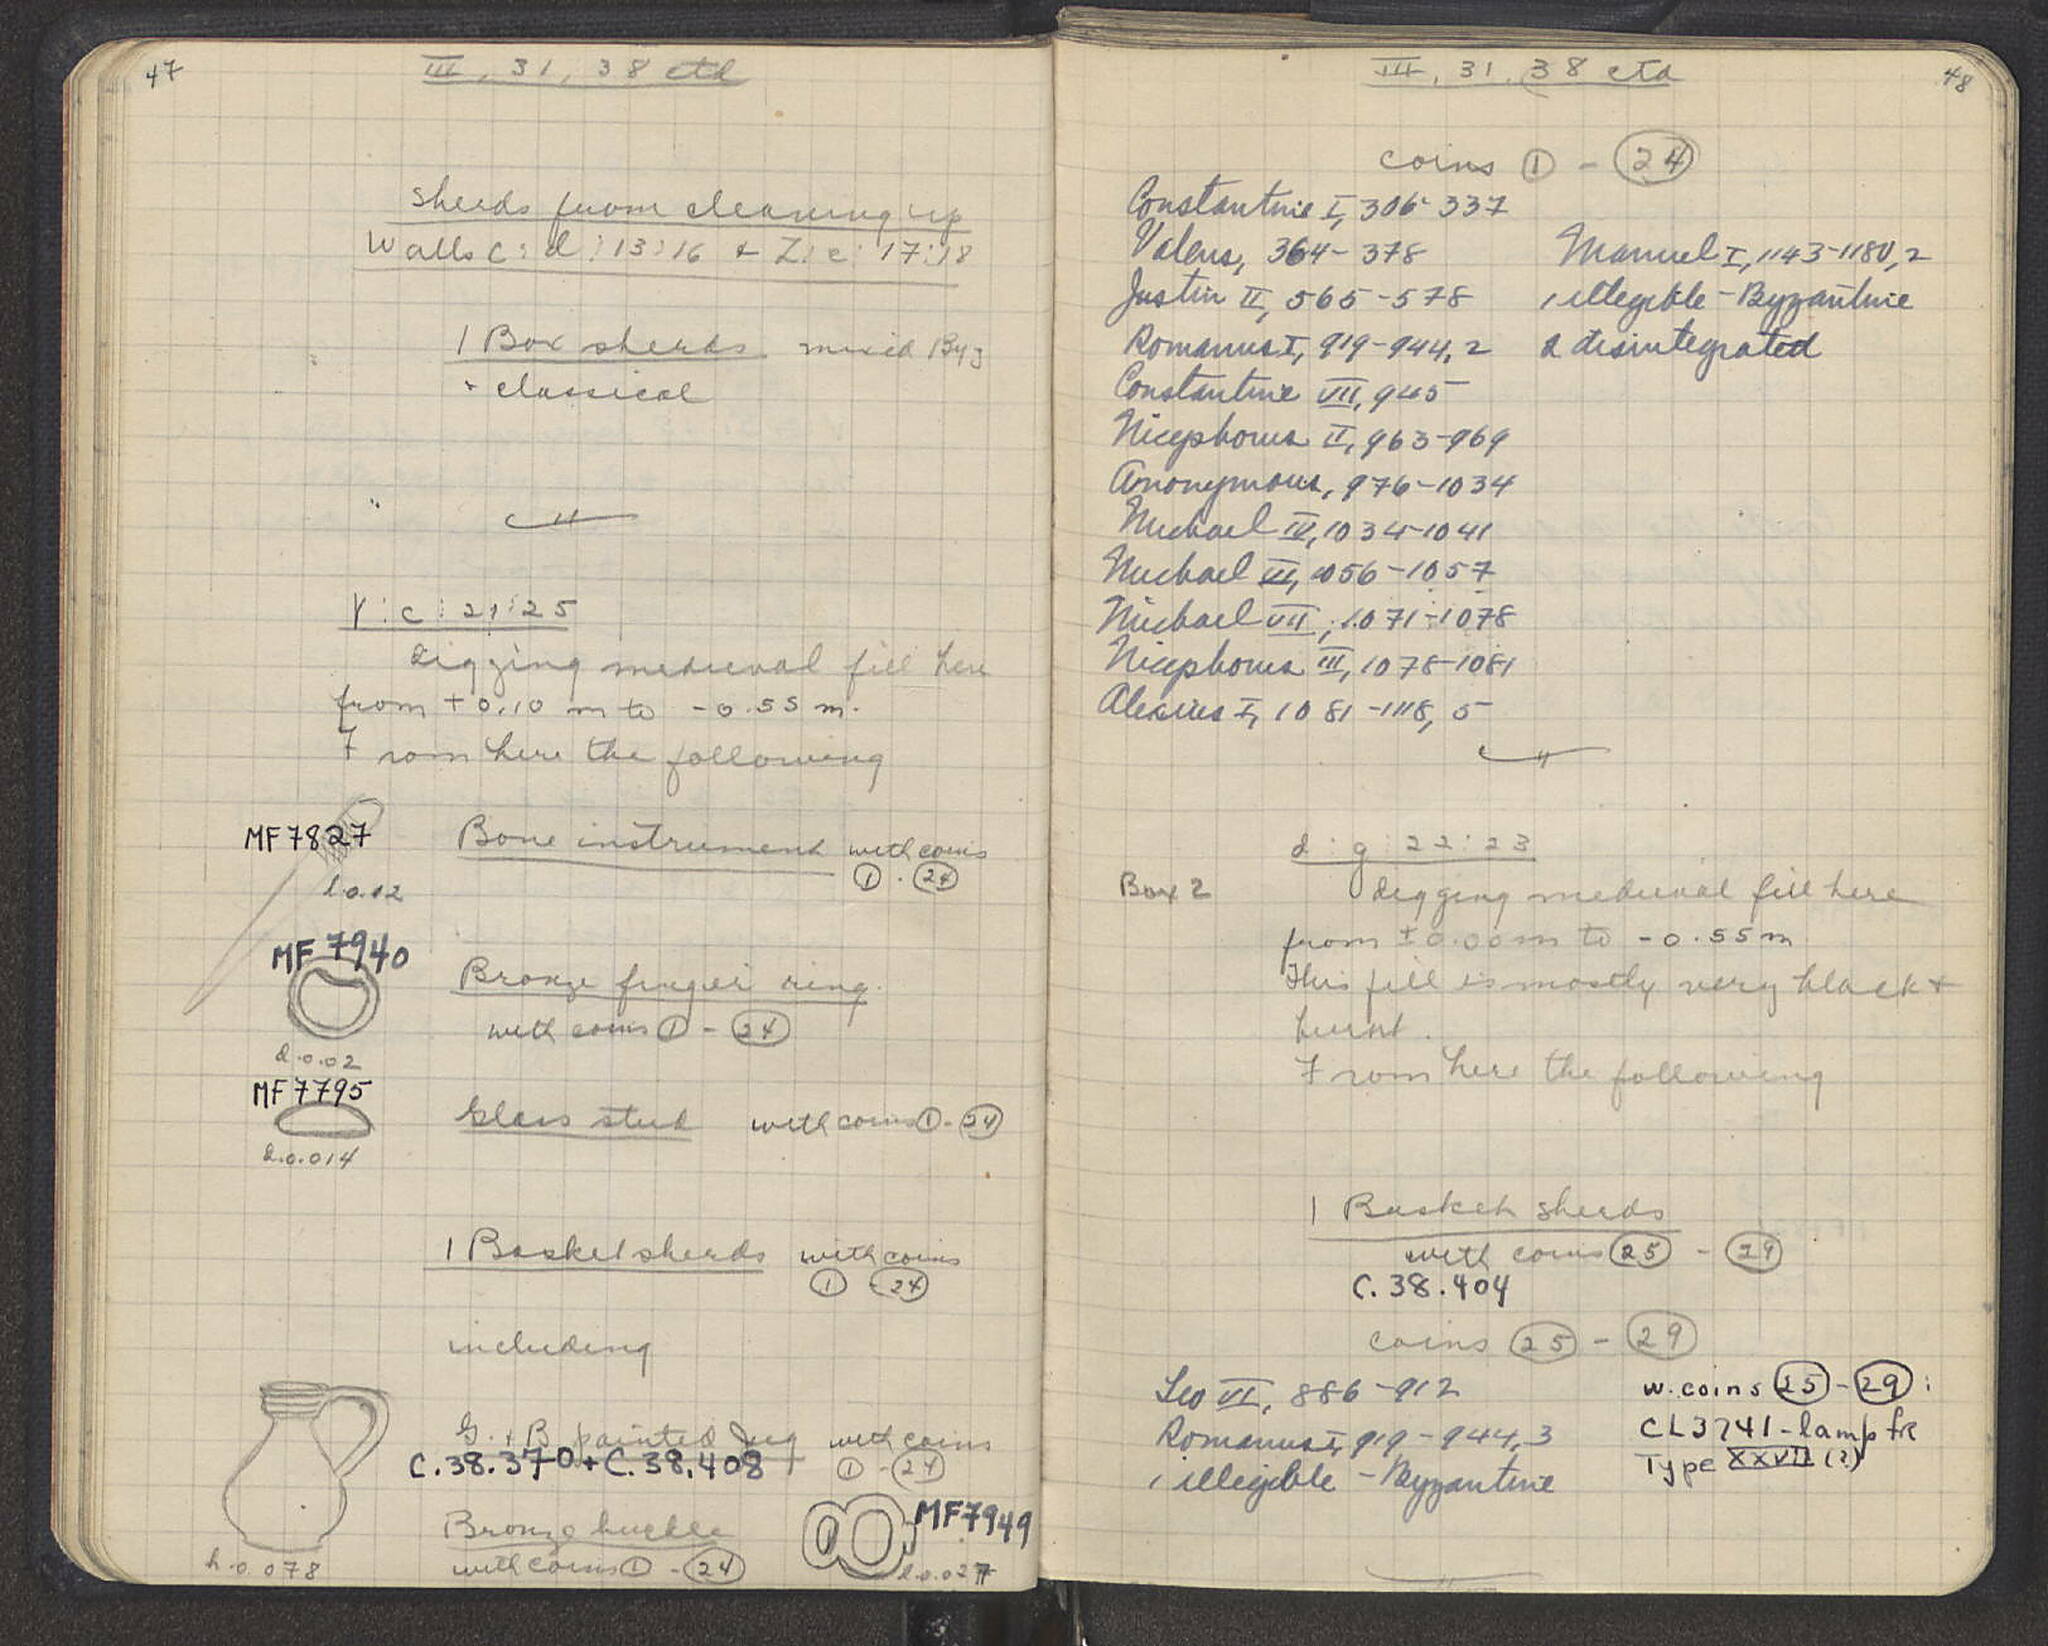 47
III, 31, 38 ctd
Sherds from cleaning up
Walls c:d:13:16 + Z:c:17:18
1 Box sherds mixed Byz
+ classical
Y:c:21:25
digging medieval fill here
from +0.10 m to -0.55 m.
From here the following
MF 7827 Bone instrument with coins
① - ㉔
l.0.12
MF 7940
Bronze finger ring.
with coins ① - ㉔
d.0.02
MF 7795
Glass stud with coins ① - ㉔
d.0.014
1 Basket sherds with coins
① - ㉔
including
G. + B painted Jug with coins
C.38.370 + C.38.408 ① - ㉔
Bronze buckle MF 7949
with coins ① - ㉔ l.0.027
h.0.078
III, 31, 38 ctd
48
coins ① - ㉔
Constantine I, 306-337
Valens, 364-378 Manuel I, 1143-1180, 2
Justin II, 565-578 1 illegible - Byzantine
Romanus I, 919-944, 2 2 disintegrated
Constantine VII, 945
Nicephorus II, 963-969
Anonymous, 976-1034
Michael IV, 1034-1041
Michael VI, 1056-1057
Michael VII, 1071-1078
Nicephorus III, 1078-1081
Alexius I, 1081-1118, 5
d:g:22:23
Box 2 digging medieval fill here
from ±0.00 m to -0.55 m
This fill is mostly very black +
burnt.
From here the following
1 Basket sherds
with coins ㉕ - ㉙
C.38.404
coins ㉕ - ㉙
Leo VI, 886-912 w. coins ㉕ - ㉙:
Romanus I, 919-944, 3 CL3741 - lamp fr
1 illegible - Byzantine Type XXVII (?)